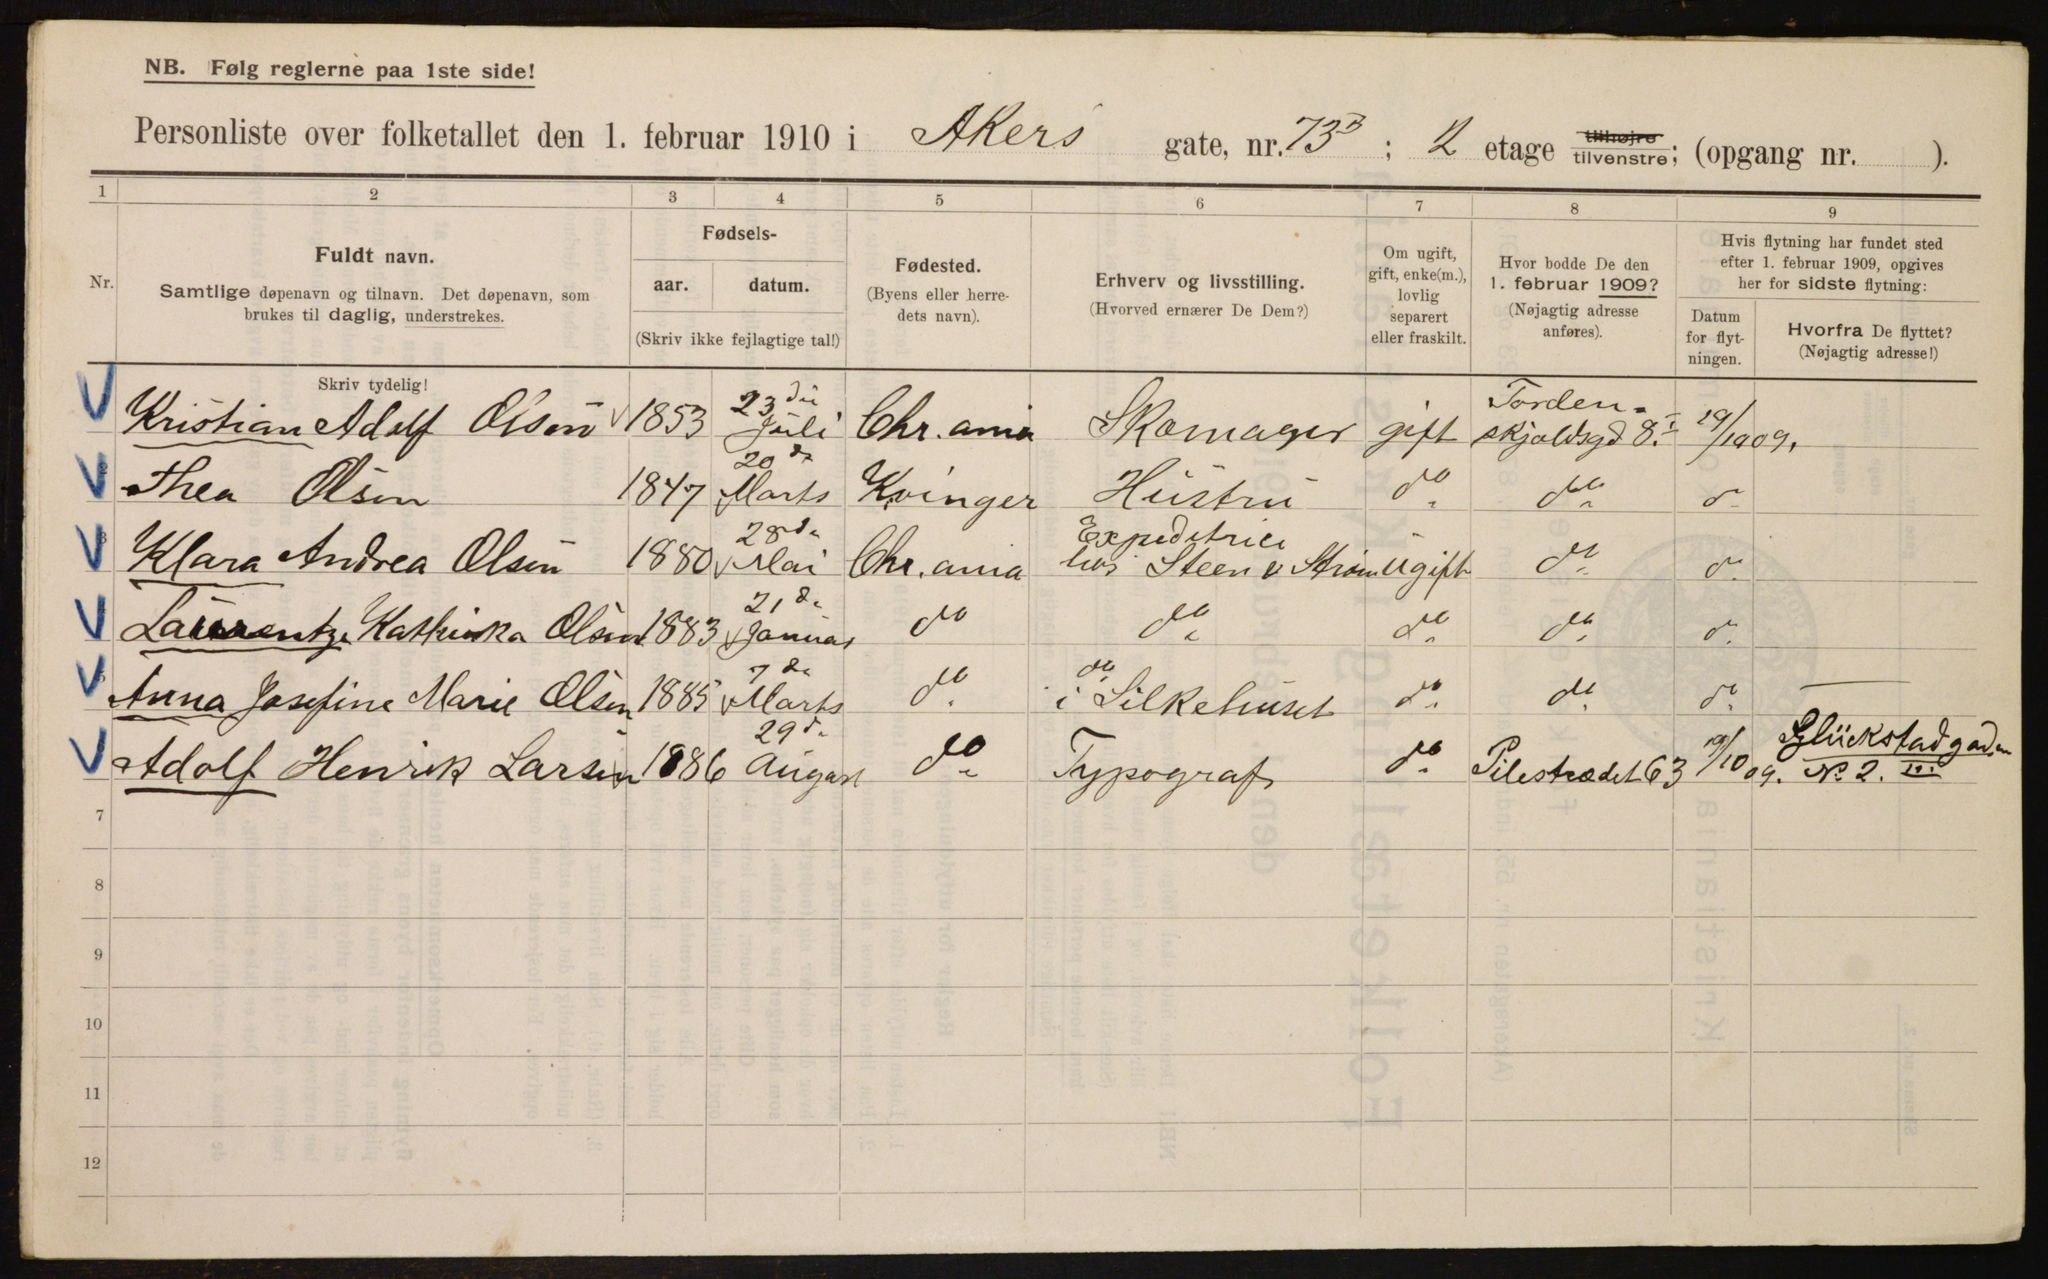 NB. Følg reglerne paa 1ste side!
Personliste over folketallet den 1. februar 1910 i Akers gate, nr. 73 B ; 2 etage tilhøjre tilvenstre; (opgang nr. ).
1 2 3 4 5 6 7 8 9
Nr.
Fuldt navn.
Samtlige døpenavn og tilnavn. Det døpenavn, som
brukes til daglig, understrekes.
Skriv tydelig!
Fødsels-
aar. datum.
(Skriv ikke fejlagtige tal!)
Fødested.
(Byens eller herre-
dets navn).
Erhverv og livsstilling.
(Hvorved ernærer De Dem?)
Om ugift,
gift, enke(m.),
lovlig
separert
eller fraskilt.
Hvor bodde De den
1. februar 1909?
(Nøjagtig adresse
anføres).
Hvis flytning har fundet sted
efter 1. februar 1909, opgives
her for sidste flytning:
Datum
for flyt-
ningen.
Hvorfra De flyttet?
(Nøjagtig adresse!)
Kristian Adolf Olsen 1853 23 Juli Chr.ania Skomager gift Torden-skjoldsgd 8. I 19/10 09.
Thea Olsen 1847 20 Marts Kvinger Hustru do do do
Klara Andrea Olsen 1880 28 Mai Chr.ania Expeditrice hos Steen & Strøm Ugift do do
Laurentze Kathinka Olsen 1883 21 Januar do do do do do
Anna Josefine Marie Olsen 1885 7 Marts do do i Silkehuset do do do
Adolf Henrik Larsen 1886 29 August do Typograf do Pilestrædet 63 19/10 09. Glückstadgaden No 2. II
7
8
9
10
11
12